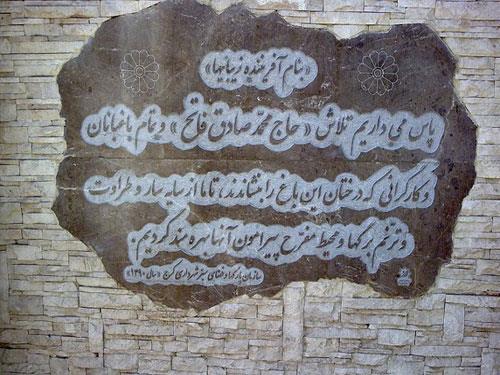 «بنام آفریننده زیبائیها»
پاس می داریم تلاش «حاج محمد صادق فاتح» و تمام باغبانان
و کارگرانی که درختان این باغ را بنشاندند، تا ما از سایه سار و طراوت
و ترنم برگها و محیط مفرح پیرامون آنها بهره مند گردیم.
سازمان پارکها و فضای سبز شهرداری کرج «سال ۱۳۹۰»